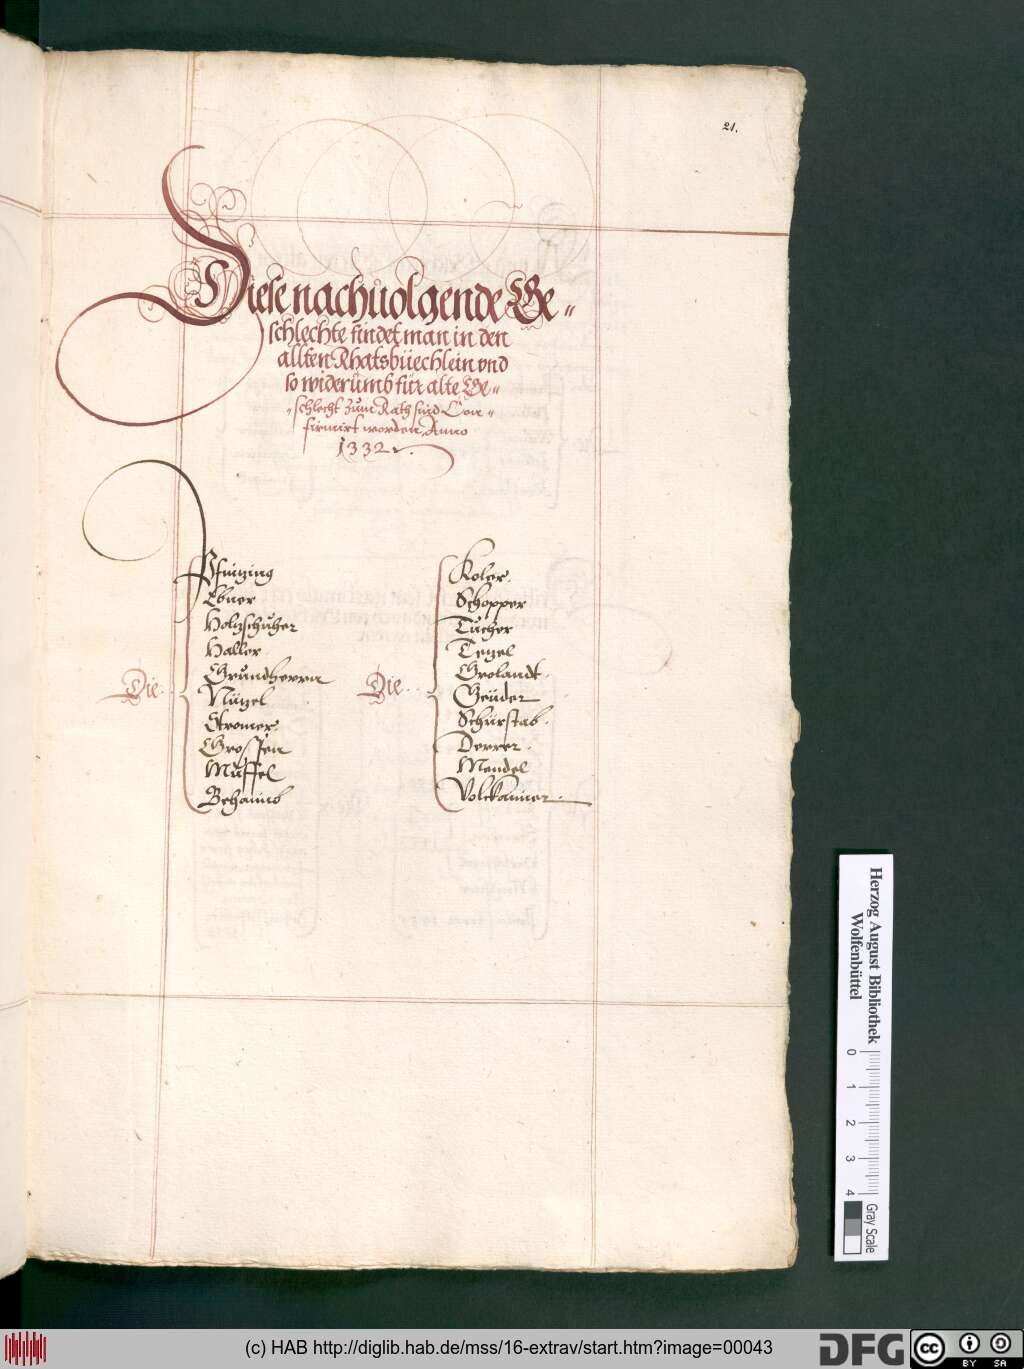 21.
Diese nachuolgende Ge=
schlechte findet man in den
allten Rhatsbüechlein vnd
so widerumb für alte Ge=
=schlecht zum Rath sind Con=
firmirt worden, Anno
1332.
Die
Pfintzing
Ebner
Holtzschuher
Haller
Grundherrn
Nützel
Stromer
Grossen
Muffel
Behaimb
Die
Koler
Schopper
Tucher
Tetzel
Grolandt
Geuder
Schürstab
Derrer
Mendel
Volckamer
Herzog August Bibliothek
Wolfenbüttel
0 1 2 3 4
Gray Scale
(c) HAB http://diglib.hab.de/mss/16-extrav/start.htm?image=00043
DFG
cc
BY SA